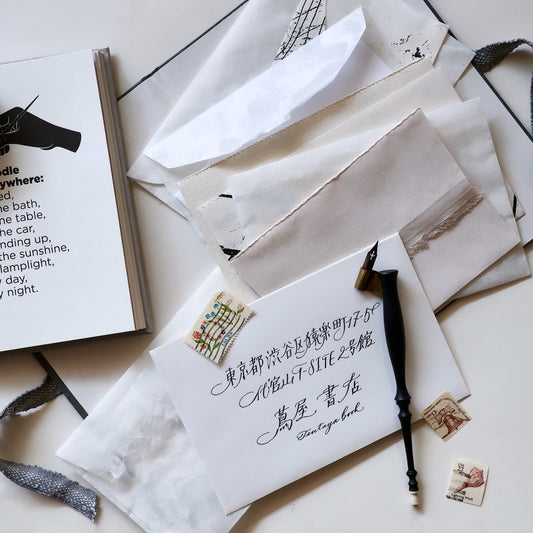 odle
ywhere:
ed,
he bath,
he table,
the car,
nding up,
the sunshine,
lamplight,
y day,
y night.
東京都渋谷区猿楽町17-5
代官山T-SITE 2号館
蔦屋書店
Tsutaya book